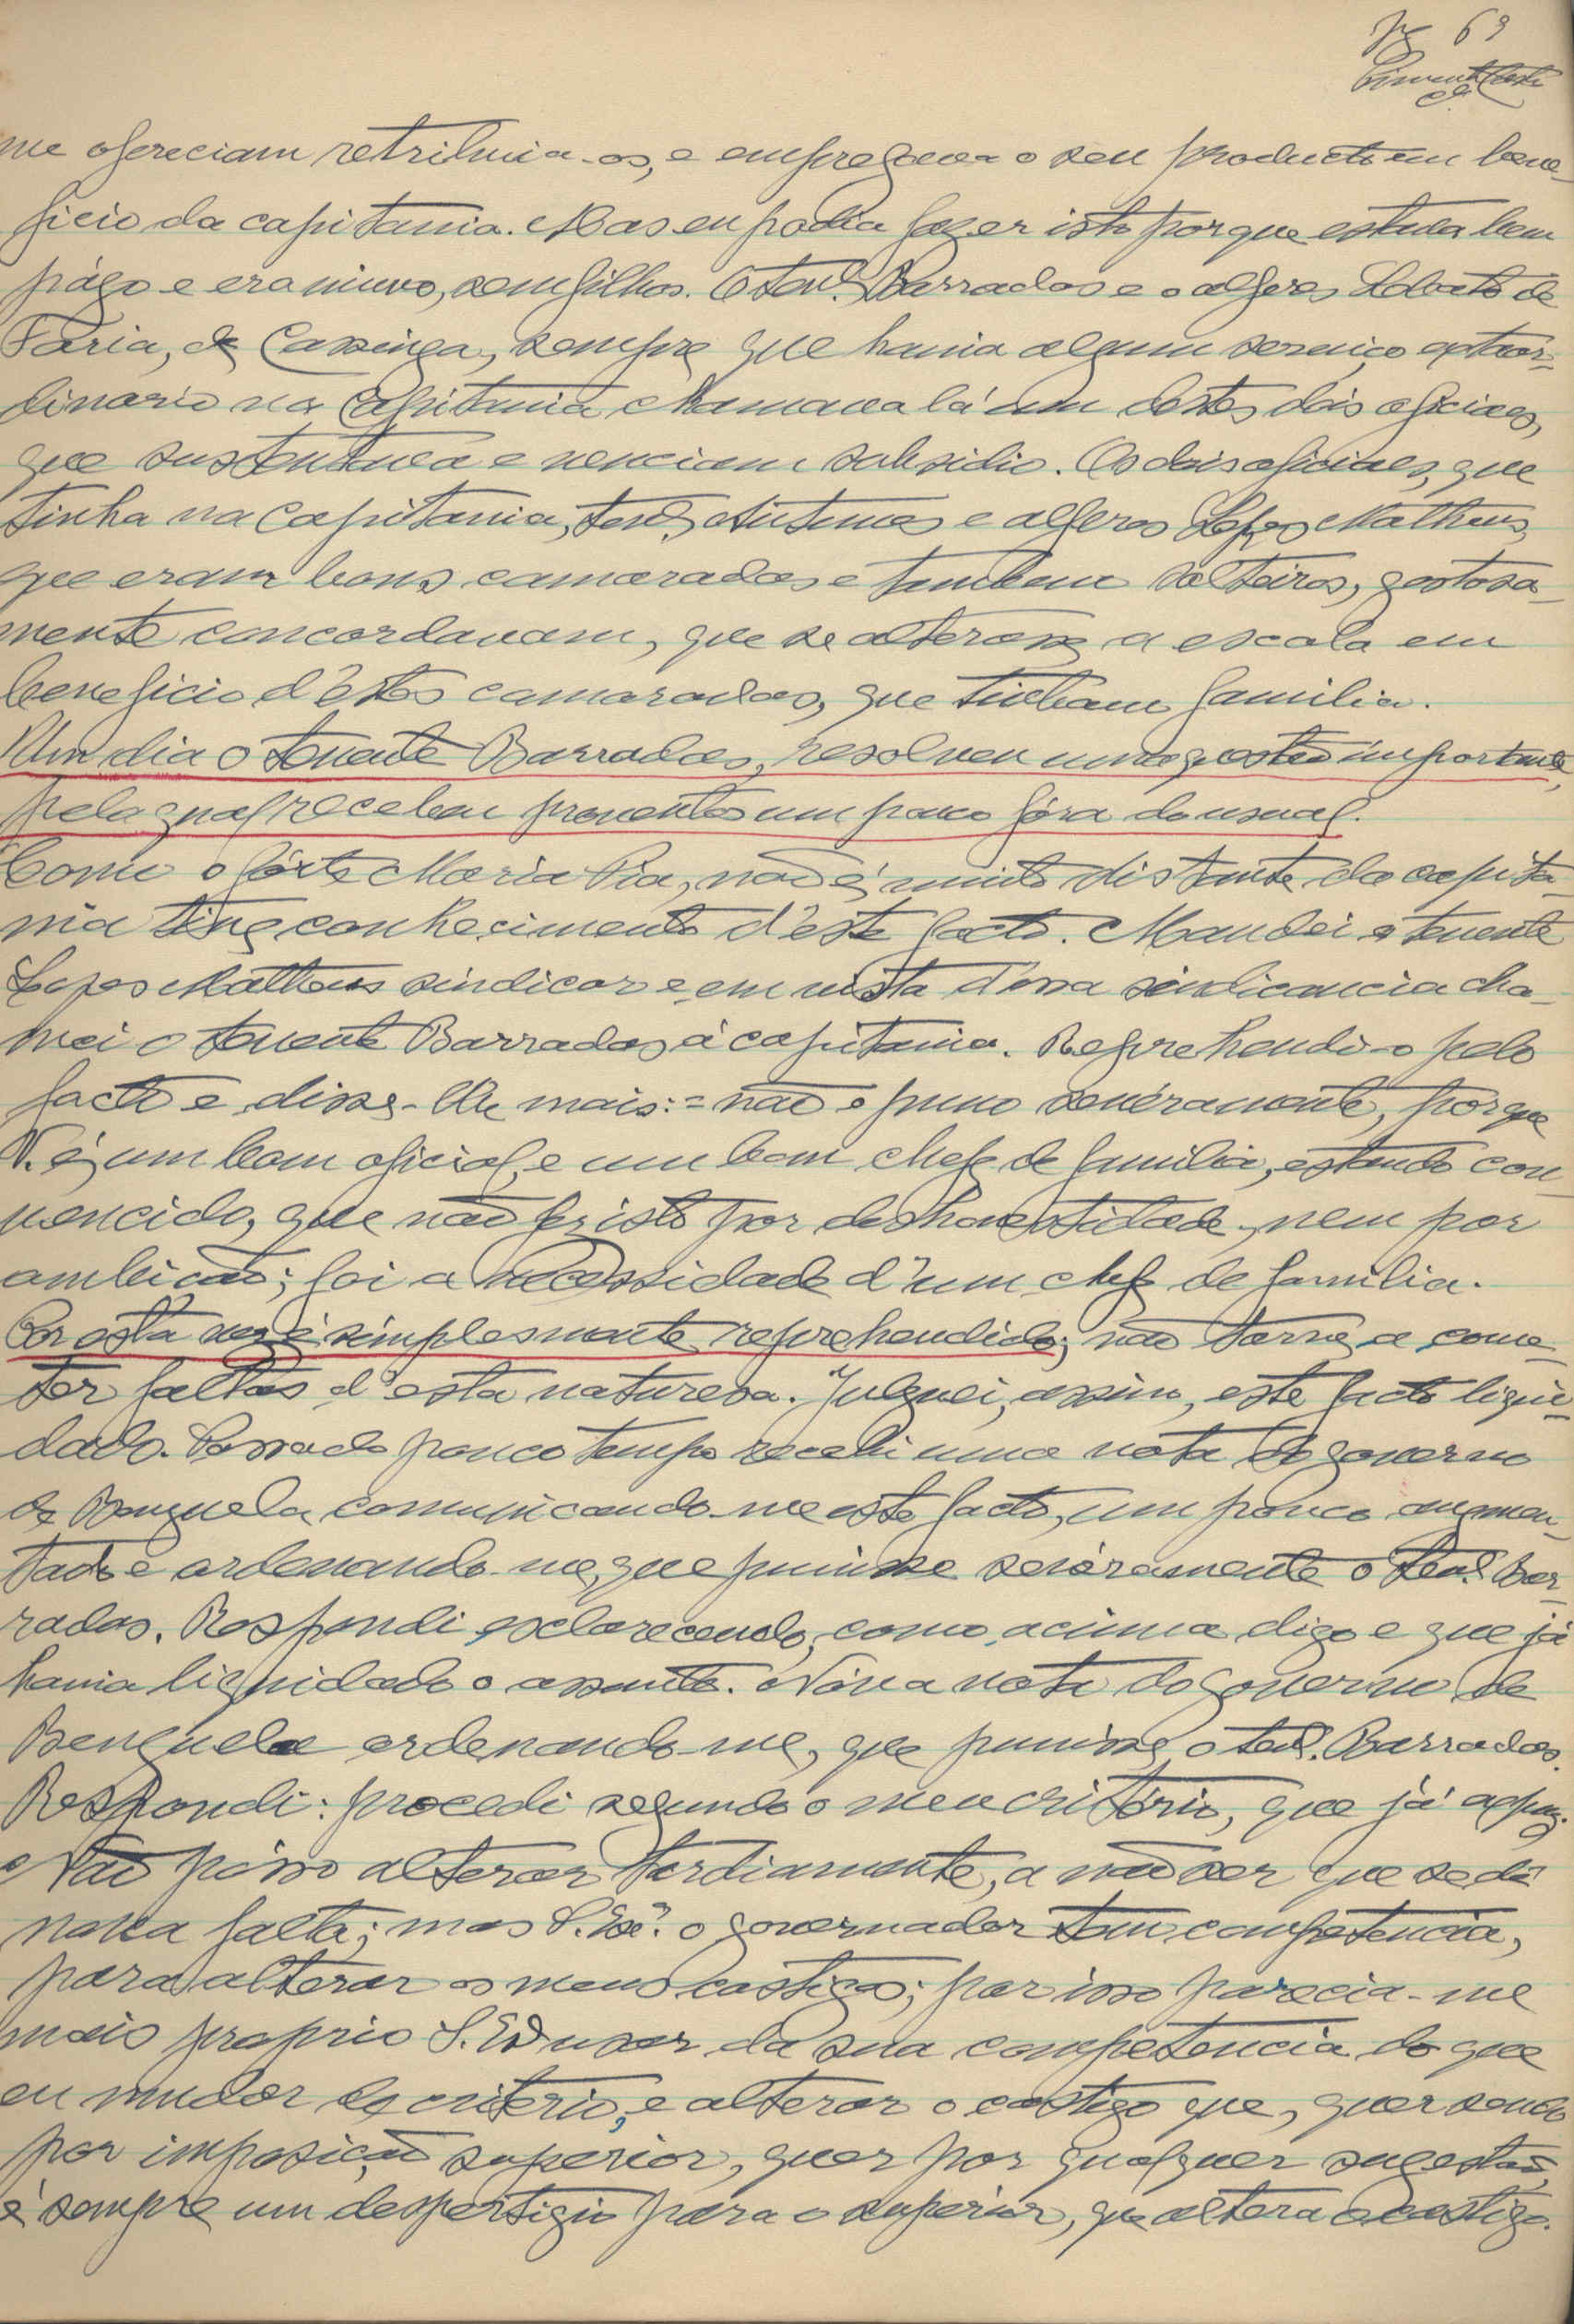 69
me ofereciam retribuia-os, e empregava o seu producto em bene-
ficio da capitania. Mas eu podia fazer isto porque estava bem
págo e era viuvo, sem filhos. O ten.te Barradas e o alferes Lobato de
Faria, de Cassinga, sempre que havia algum serviço extraor-
dinario na capitania chamava lá um destes dois oficiaes,
que sustentava e venciam subsidio. Os dois oficiaes, que
tinha na capitania, ten.te Antunes e alferes Lopes Matheus,
que eram bons camaradas e tambem solteiros, gostosa-
mente concordavam, que se alterasse a escala em
beneficio d'estes camaradas, que tinham familia.
Um dia o tenente Barradas, resolveu uma questão importante,
pela qual recebeu proventos um pouco fóra do usual.
Como o forte Maria Pia, não é muito distante da capita-
nia tive conhecimento d'este facto. Mandei o tenente
Lopes Matheus sindicar e, em vista d'essa sindicancia cha-
mei o tenente Barradas á capitania. Reprehendi-o pelo
facto e disse-lhe mais: = não o puno sevéramente, porque
V. é um bom oficial, e um bom chefe de familia, estando con-
vencido, que não fez isto por deshonestidade, nem por
ambicão; foi a necessidade d'um chefe de familia.
Por esta vez é simplesmente reprehendido; não torne a come-
ter faltas d'esta naturesa. Julguei, assim, este facto liqui-
dado. Passado pouco tempo recebi uma nota do governo
de Benguela comunicando-me este facto, um pouco augmen-
tado e ordenando-me, que punisse sevéramente o ten.te Bar-
radas. Respondi esclarecendo, como acima digo e que já
havia liquidado o assunto. Nova nota do governo de
Benguela ordenando-me, que punisse o ten.te Barradas.
Respondi: procedi segundo o meu critério, que já expuz.
Não posso alterar tardiamente, a não ser que se dê
nova falta; mas S. Ex.ª o governador tem competencia,
para alterar os meus castigos; por isso parecia-me
mais proprio S. Ex.ª usar da sua competencia do que
eu mudar de criterio, e alterar o castigo que, quer sendo
por imposicão superior, quer por qualquer sugestão,
é sempre um despertigio para o superior, que altera o castigo.